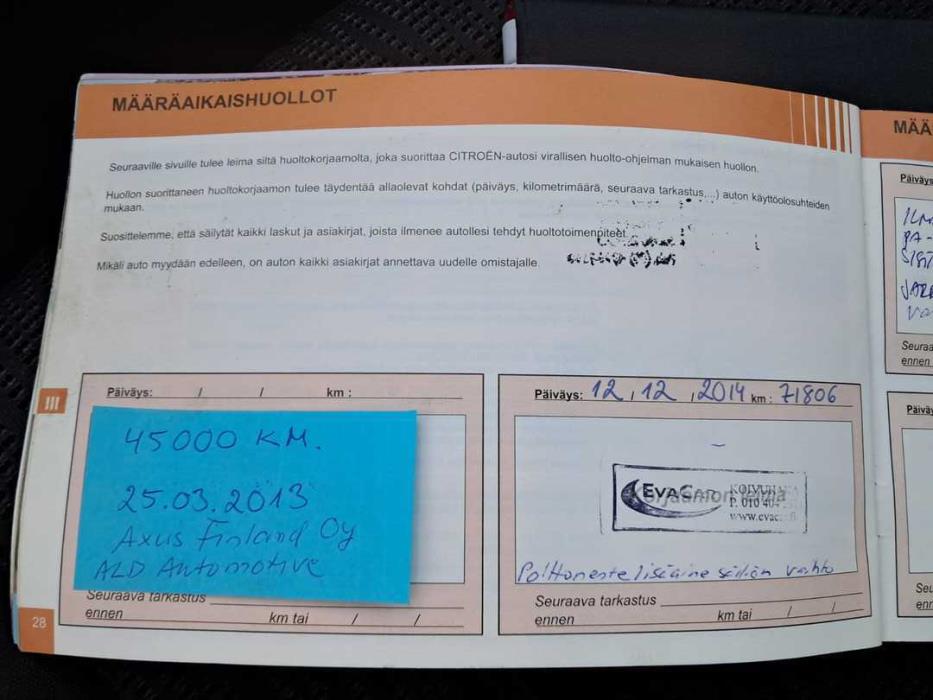 MÄÄRÄAIKAISHUOLLOT
Seuraaville sivuille tulee leima siltä huoltokorjaamolta, joka suorittaa CITROËN-autosi virallisen huolto-ohjelman mukaisen huollon.
Huollon suorittaneen huoltokorjaamon tulee täydentää allaolevat kohdat (päiväys, kilometrimäärä, seuraava tarkastus,...) auton käyttöolosuhteiden
mukaan.
Suosittelemme, että säilytät kaikki laskut ja asiakirjat, joista ilmenee autollesi tehdyt huoltotoimenpiteet.
Mikäli auto myydään edelleen, on auton kaikki asiakirjat annettava uudelle omistajalle.
III
Päiväys: / / km :
45000 KM.
25.03.2013
Axus Finland Oy
ALD Automotive
Seuraava tarkastus
ennen km tai / /
28
Päiväys: 12, 12, 2014 km : 71806
EVACAR
Korjaamon leima
P. 010 404
www.evac
Polttoneste lisäaine säiliön vaihto
Seuraava tarkastus
ennen km tai / /
MÄÄ
Päiväys
Seuraa
ennen
Päivä
Seu
enn